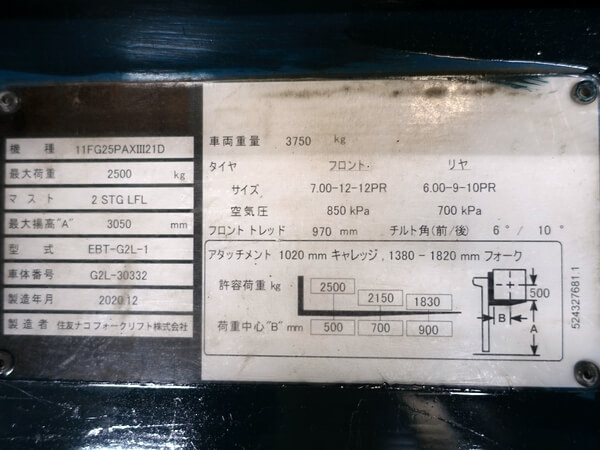 機 種 11FG25PAXⅢ21D
最大荷重 2500 kg
マスト 2 STG LFL
最大揚高"A" 3050 mm
型 式 EBT-G2L-1
車体番号 G2L-30332
製造年月 2020.12
製造者 住友ナコフォークリフト株式会社
車両重量 3750 kg
タイヤ フロント リヤ
サイズ 7.00-12-12PR 6.00-9-10PR
空気圧 850 kPa 700 kPa
フロント トレッド 970 mm チルト角(前/後) 6°/ 10°
アタッチメント 1020 mm キャレッジ, 1380 - 1820 mm フォーク
許容荷重 kg 2500 2150 1830
荷重中心"B" mm 500 700 900
500
B
A
524327681.1